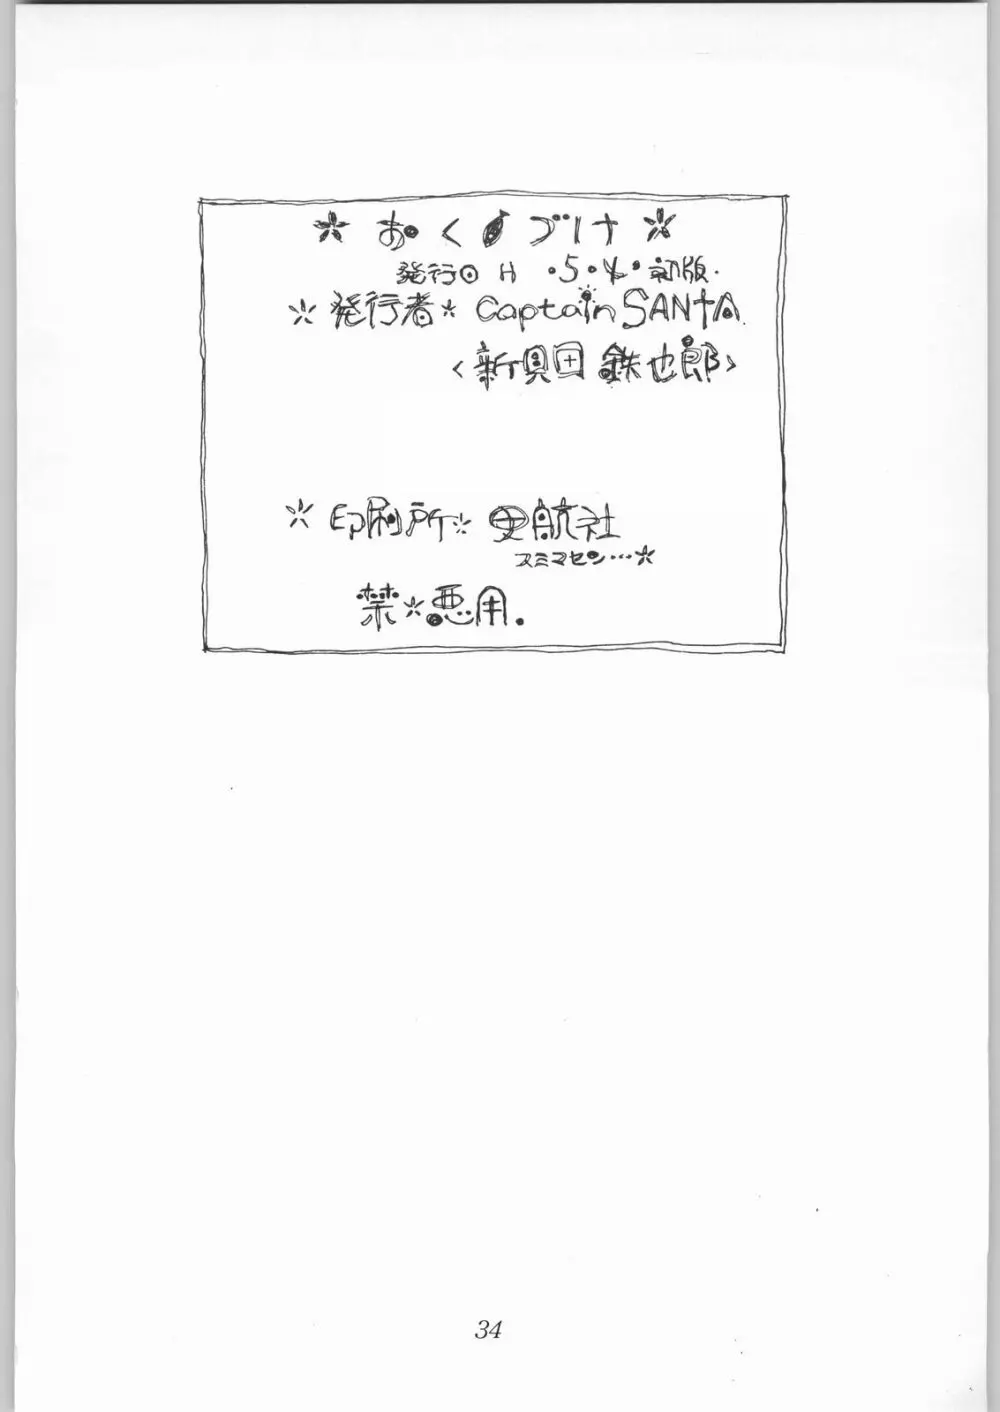 * おくづけ *
発行日 H ・5・4・初版・
* 発行者 * Captain SANTA
<新貝田 鉄也郎>
* 印刷所 * 曳航社
スミマセン…*
禁*悪用.
34